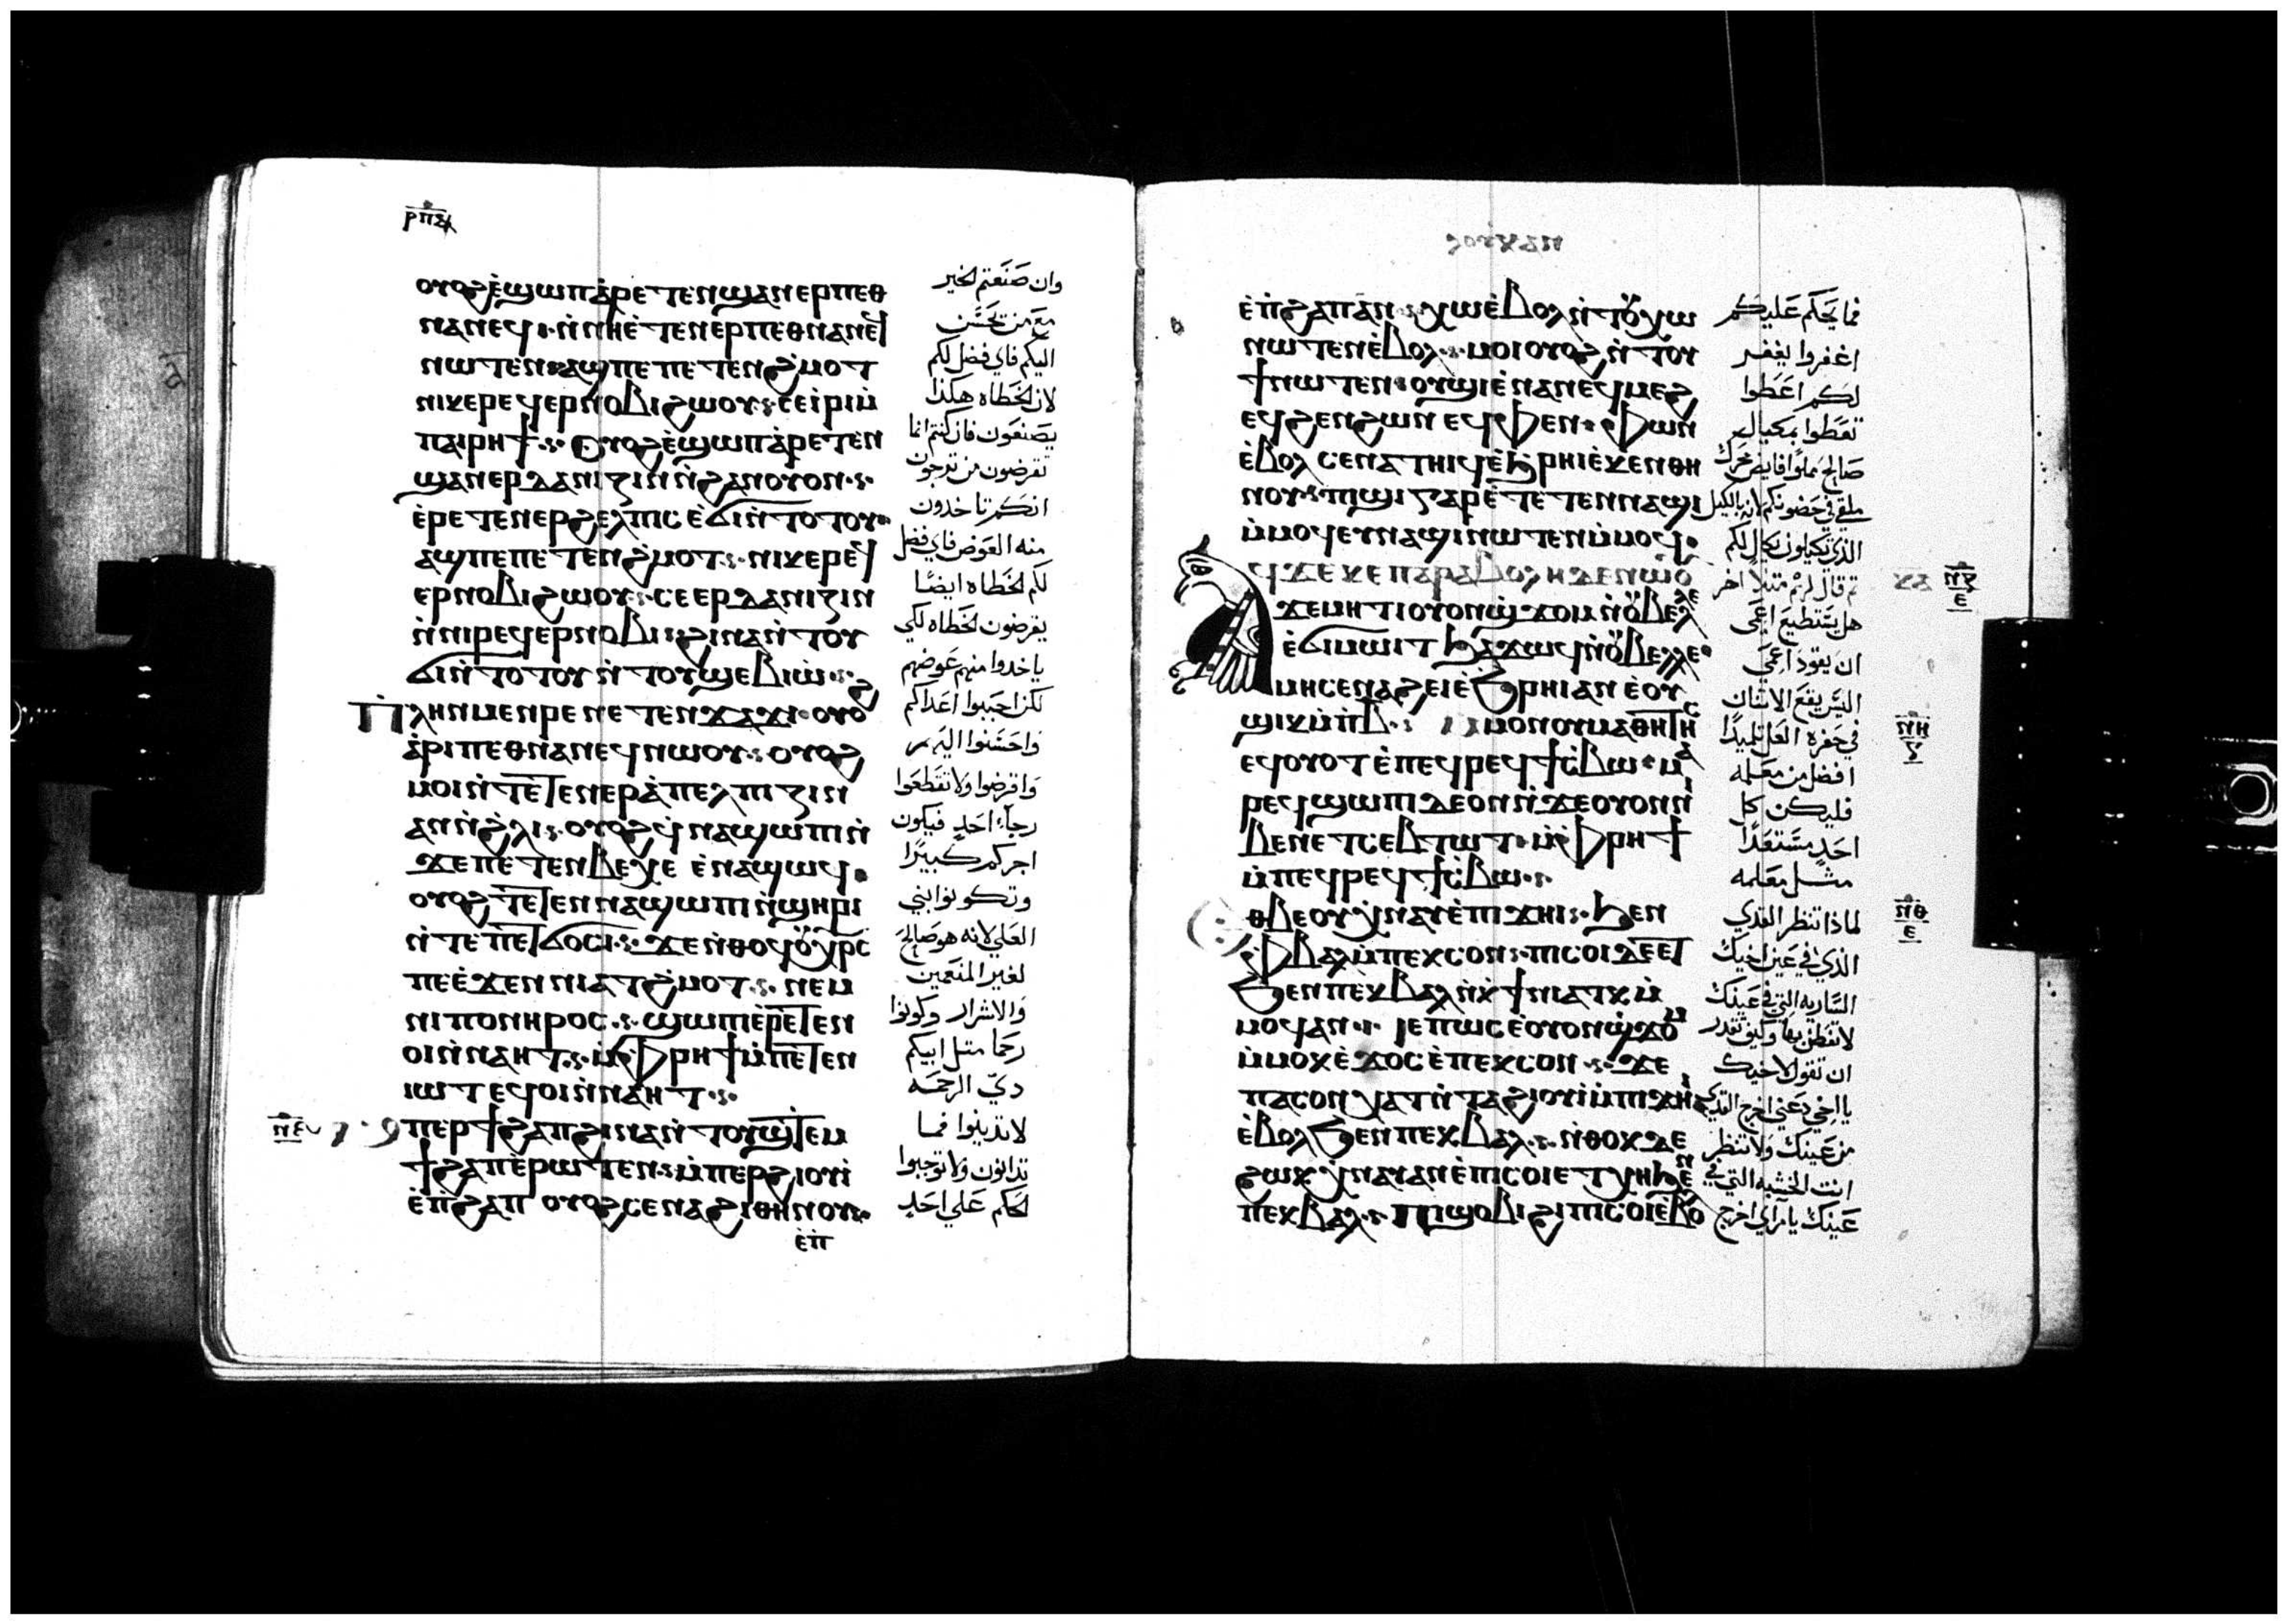 ⲣⲡⲇ
ⲟⲩⲟϩ ⲉ̀ϣⲱⲡ ⲁ̀ⲣⲉⲧⲉⲛϣⲁⲛⲉⲣⲡⲉⲑ
ⲛⲁⲛⲉϥ ⲛ̀ⲛⲏⲉ̀ⲧⲉⲛⲉⲣⲡⲉⲑⲛⲁⲛⲉϥ
ⲛⲱⲧⲉⲛ ⲁϣ ⲡⲉ ⲡⲉⲧⲉⲛϩ̀ⲙⲟⲧ
ⲛⲓⲕⲉⲣⲉϥⲉⲣⲛⲟⲃⲓ ϩⲱⲟⲩ ⲥⲉⲓ̀ⲣⲓ ⲙ̀
ⲡⲁⲓⲣⲏϯ ⲟⲩⲟϩ ⲉ̀ϣⲱⲡ ⲁ̀ⲣⲉⲧⲉⲛ
ϣⲁⲛⲉⲣⲇⲁⲛⲓⲍⲓⲛ ⲛ̀ϩⲁⲛⲟⲩⲟⲛ
ⲉ̀ⲣⲉⲧⲉⲛⲉⲣϩⲉⲗⲡⲓⲥ ⲉ̀ϭⲓ ⲛ̀ⲧⲟⲧⲟⲩ
ⲁϣ ⲡⲉ ⲡⲉⲧⲉⲛϩ̀ⲙⲟⲧ ⲛⲓⲕⲉⲣⲉϥ
ⲉⲣⲛⲟⲃⲓ ϩⲱⲟⲩ ⲥⲉⲉⲣⲇⲁⲛⲓⲍⲓⲛ
ⲛ̀ⲛⲓⲣⲉϥⲉⲣⲛⲟⲃⲓ ϩⲓⲛⲁ ⲛ̀ⲧⲟⲩ
ϭⲓ ⲛ̀ⲧⲟⲧⲟⲩ ⲛ̀ⲧⲟⲩϣⲉⲃⲓⲱ̀
ⲡ̀ⲗⲏⲛ ⲙⲉⲛⲣⲉ ⲛⲉⲧⲉⲛϫⲁϫⲓ ⲟⲩⲟϩ
ⲁ̀ⲣⲓⲡⲉⲑⲛⲁⲛⲉϥ ⲛⲱⲟⲩ ⲟⲩⲟϩ
ⲙⲟⲓ ⲛ̀ⲧⲉⲧⲉⲛⲉⲣⲁ̀ⲡⲉⲗⲡⲓⲍⲓⲛ
ⲁⲛ ⲛ̀ϩ̀ⲗⲓ ⲟⲩⲟϩ ϥ̀ⲛⲁϣⲱⲡⲓ ⲛ̀
ϫⲉ ⲡⲉⲧⲉⲛⲃⲉⲭⲉ ⲉ̀ⲛⲁϣⲱϥ
ⲟⲩⲟϩ ⲧⲉⲧⲉⲛⲛⲁϣⲱⲡⲓ ⲛ̀ϣⲏⲣⲓ
ⲛ̀ⲧⲉ ⲡⲉⲧϭⲟⲥⲓ ϫⲉ ⲛ̀ⲑⲟϥ ⲟⲩⲭ̀ⲣⲥ
ⲡⲉ ⲉ̀ϫⲉⲛ ⲛⲓⲁⲧϩ̀ⲙⲟⲧ ⲛⲉⲙ
ⲛⲓⲡⲟⲛⲏⲣⲟⲥ ϣⲱⲡⲓ ⲉ̀ⲣⲉⲧⲉⲛ
ⲟⲓ ⲛ̀ⲛⲁⲏⲧ ⲙ̀ⲫ̀ⲣⲏϯ ⲙ̀ⲡⲉⲧⲉⲛ
ⲓⲱⲧ ⲉϥⲟⲓ ⲛ̀ⲛⲁⲏⲧ
ⲛ̅ⲉ̅ ⲙⲡⲉⲣϯϩⲁⲡ ϩⲓⲛⲁ ⲛ̀ⲧⲟⲩϣⲧⲉⲙ
ϯϩⲁⲡ ⲉ̀ⲣⲱⲧⲉⲛ ⲙ̀ⲡⲉⲣϩⲓⲟⲩⲓ̀
ⲉ̀ⲡ̀ϩⲁⲡ ⲟⲩⲟϩ ⲥⲉⲛⲁϩⲓⲑⲏⲛⲟⲩ
ⲉ̀ⲡ̀
وان صنعتم الخير
مع من يحسن
اليكم فاي فضل لكم
لان الخطاه هكذا
يصنعون فان كنتم انما
تقرضون من ترجون
انكم تاخدون
منه العوض فاي فضل
لكم الخطاه ايضًا
يقرضون الخطاه لكي
ياخدوا منهم عوضهم
لكن احببوا اعداكم
واحسنوا اليهم
واقرضوا ولا تقطعوا
رجاء احدٍ فيكون
اجركم كبيرًا
وتكونوا بني
العلي لانه هو صالح
لغير المنعمين
والاشرار وكونوا
رحما متل ابيكم
دي الرحمه
لا تدينوا فما
تدانون ولا توجبوا
الحكم علي احدٍ
ⲗⲟⲩⲕⲁⲛ
ⲉ̀ⲡ̀ϩⲁⲡ ⲁⲛ ⲭⲱ ⲉ̀ⲃⲟⲗ ⲛ̀ⲧⲟⲩⲭⲱ
ⲛⲱⲧⲉⲛ ⲉ̀ⲃⲟⲗ ⲙⲟⲓ ⲟⲩⲟϩ ⲛ̀ⲧⲟⲩ
ϯ ⲛⲱⲧⲉⲛ ⲟⲩϣⲓ ⲉ̀ⲛⲁⲛⲉϥ ⲉϥⲙⲉϩ
ⲉϥϩⲉⲛϩⲱⲛ ⲉϥⲫⲉⲛⲫⲱⲛ
ⲉ̀ⲃⲟⲗ ⲥⲉⲛⲁⲧⲏⲓϥ ⲉ̀ϧ̀ⲣⲏⲓ ⲉ̀ⲕⲉⲛⲑⲏ
ⲛⲟⲩ ⲡⲓϣⲓ ⲅⲁⲣ ⲉ̀ⲧⲉⲧⲉⲛⲛⲁϣⲓ
ⲙ̀ⲙⲟϥ ⲉⲩⲛⲁϣⲓ ⲛⲱⲧⲉⲛ ⲙ̀ⲙⲟϥ
ⲁϥϫⲉ ⲕⲉⲡⲁⲣⲁⲃⲟⲗⲏ ⲇⲉ ⲛⲱⲟⲩ
ϫⲉ ⲙⲏⲧⲓ ⲟⲩⲟⲛϣ̀ϫⲟⲙ ⲛ̀ⲟⲩⲃⲉⲗⲗⲉ
ⲉ̀ϭⲓⲙⲱⲓⲧ ϧⲁϫⲱϥ ⲛ̀ⲟⲩⲃⲉⲗⲗⲉ
ⲙⲏ ⲥⲉⲛⲁϩⲉⲓ ⲉ̀ϧ̀ⲣⲏⲓ ⲁⲛ ⲉ̀ⲟⲩ
ϣⲓⲕ ⲙ̀ⲡⲃ̅ ⲙⲙⲟⲛ ⲟⲩⲙⲁⲑⲏⲧⲏⲥ
ⲉϥⲟⲩⲟⲧ ⲉ̀ⲡⲉϥⲣⲉϥϯⲥ̀ⲃⲱ ⲙⲁ
ⲣⲉϥϣⲱⲡⲓ ⲇⲉ ⲟⲛ ⲛ̀ϫⲉ ⲟⲩⲟⲛ ⲛⲓ
ⲃⲉⲛ ⲉⲧⲥⲉⲃⲧⲱⲧ ⲙ̀ⲫ̀ⲣⲏϯ
ⲙ̀ⲡⲉϥⲣⲉϥϯⲥ̀ⲃⲱ
ⲉⲑⲃⲉⲟⲩ ⲭ̀ⲛⲁⲩ ⲉ̀ⲡⲓϫⲏⲓ ϧⲉⲛ
ⲫ̀ⲃⲁⲗ ⲙ̀ⲡⲉⲕⲥⲟⲛ ⲡⲓⲥⲟⲓ ⲇⲉ ⲉⲧ
ϧⲉⲛ ⲡⲉⲕⲃⲁⲗ ⲛ̀ⲭ̀ϯⲛⲓⲁⲧⲕ ⲙ̀
ⲙⲟϥ ⲁⲛ ⲓⲉ ⲡⲱⲥ ⲉ̀ⲟⲩⲟⲛϣ̀ϫⲟⲙ
ⲙ̀ⲙⲟⲕ ⲉ̀ϫⲟⲥ ⲉ̀ⲡⲉⲕⲥⲟⲛ ϫⲉ
ⲡⲁⲥⲟⲛ ⲭⲁⲧ ⲛ̀ⲧⲁϩⲓⲟⲩⲓ̀ ⲙ̀ⲡⲓϫⲏⲓ
ⲉ̀ⲃⲟⲗ ϧⲉⲛ ⲡⲉⲕⲃⲁⲗ ⲛ̀ⲑⲟⲕ ⲇⲉ
ϩⲱⲕ ⲭ̀ⲛⲁⲩ ⲁⲛ ⲉ̀ⲡⲓⲥⲟⲓ ⲉⲧⲭⲏ ϧⲉⲛ
ⲡⲉⲕⲃⲁⲗ ⲡⲓϣⲟⲃⲓ ϩⲓ ⲡⲓⲥⲟⲓ ⲉ̀ⲃⲟ
فما يحكم عليكم
اغفروا يغفر
لكم اعطوا
تعطوا بمكيال
صالح مملوًا فايض
ملقي في حضونكم لانه بالكيل
الذي تكيلون يكال لكم
تم قال لهم متلًا اخر
هل يستطيع اعمي
ان يقود اعمي
اليس يقع الاتنان
في حفره العل تلميدًا
افضل من معلمه
فليكن كل
احدٍ مستعدًا
متل معلمه
لماذا تنظر القدي
الذي في عين اخيك
الساريه التي في عينك
لا تفطن بها وكيف تقدر
ان تقول لاخيك
يا اخي دعني اخرج القدي
من عينك ولا تنظر
انت الخشبه التي في
عينك يا مرآي اخرج
ⲛ̅ⲍ̅
ⲉ
ⲛ̅ⲏ̅
ⲛ̅ⲑ̅
ⲉ